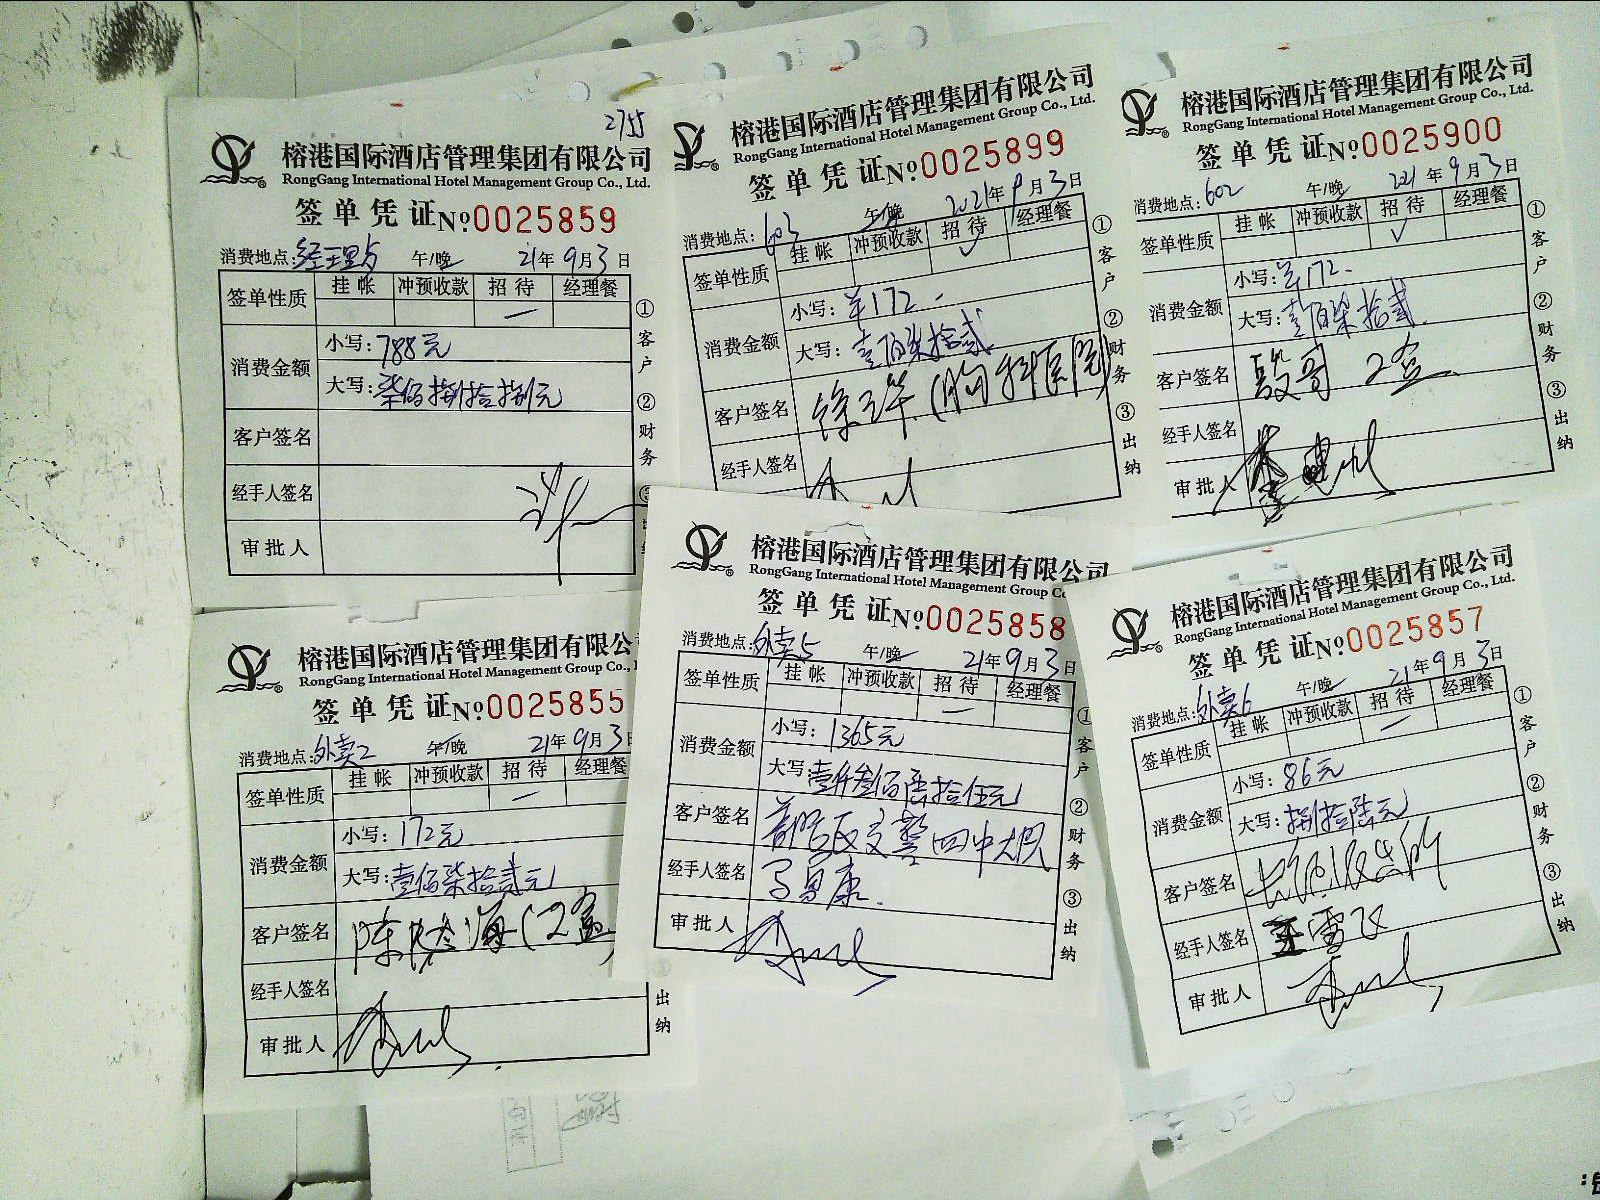 2755
榕港国际酒店管理集团有限公司
RongGang International Hotel Management Group Co., Ltd.
签单凭证 №0025859
消费地点: 经理 午/晚 21年9月3日
签单性质 挂帐 冲预收款 招待 经理餐
消费金额 小写: 788元
大写: 柒佰捌拾捌元
客户签名
经手人签名
审批人
①客户 ②财务
榕港国际酒店管理集团有限公司
RongGang International Hotel Management Group Co., Ltd.
签单凭证 №0025899
消费地点: 603 午/晚 2021年9月3日
签单性质 挂帐 冲预收款 招待 经理餐
✓
消费金额 小写: 羊172.-
大写: 壹佰柒拾贰
客户签名 (胸科医院)
经手人签名
①客户 ②财务 ③出纳
榕港国际酒店管理集团有限公司
RongGang International Hotel Management Group Co., Ltd.
签单凭证 №0025900
消费地点: 602 午/晚 2021年9月3日
签单性质 挂帐 冲预收款 招待 经理餐
✓
消费金额 小写: 羊172.-
大写: 壹佰柒拾贰
客户签名 殷哥 2盒
经手人签名
审批人
①客户 ②财务 ③出纳
榕港国际酒店管理集团有限公
RongGang International Hotel Management Group Co.,
签单凭证 №0025855
消费地点: 外卖2 午/晚 21年9月3日
签单性质 挂帐 冲预收款 招待 经理餐
消费金额 小写: 172元
大写: 壹佰柒拾贰元
客户签名 陈 海(2盒)
经手人签名
审批人
出纳
榕港国际酒店管理集团有限公司
RongGang International Hotel Management Group Co
签单凭证 №0025858
消费地点: 外卖5 午/晚 21年9月3日
签单性质 挂帐 冲预收款 招待 经理餐
消费金额 小写: 1365元
大写: 壹仟叁佰陆拾伍元
客户签名 交警四中大队
经手人签名 康
审批人
①客户 ②财务 ③出纳
榕港国际酒店管理集团有限公司
RongGang International Hotel Management Group Co., Ltd.
签单凭证 №0025857
消费地点: 外卖6 午/晚 21年9月3日
签单性质 挂帐 冲预收款 招待 经理餐
消费金额 小写: 86元
大写: 捌拾陆元
客户签名
经手人签名 王雪飞
审批人
①客户 ②财务 ③出纳